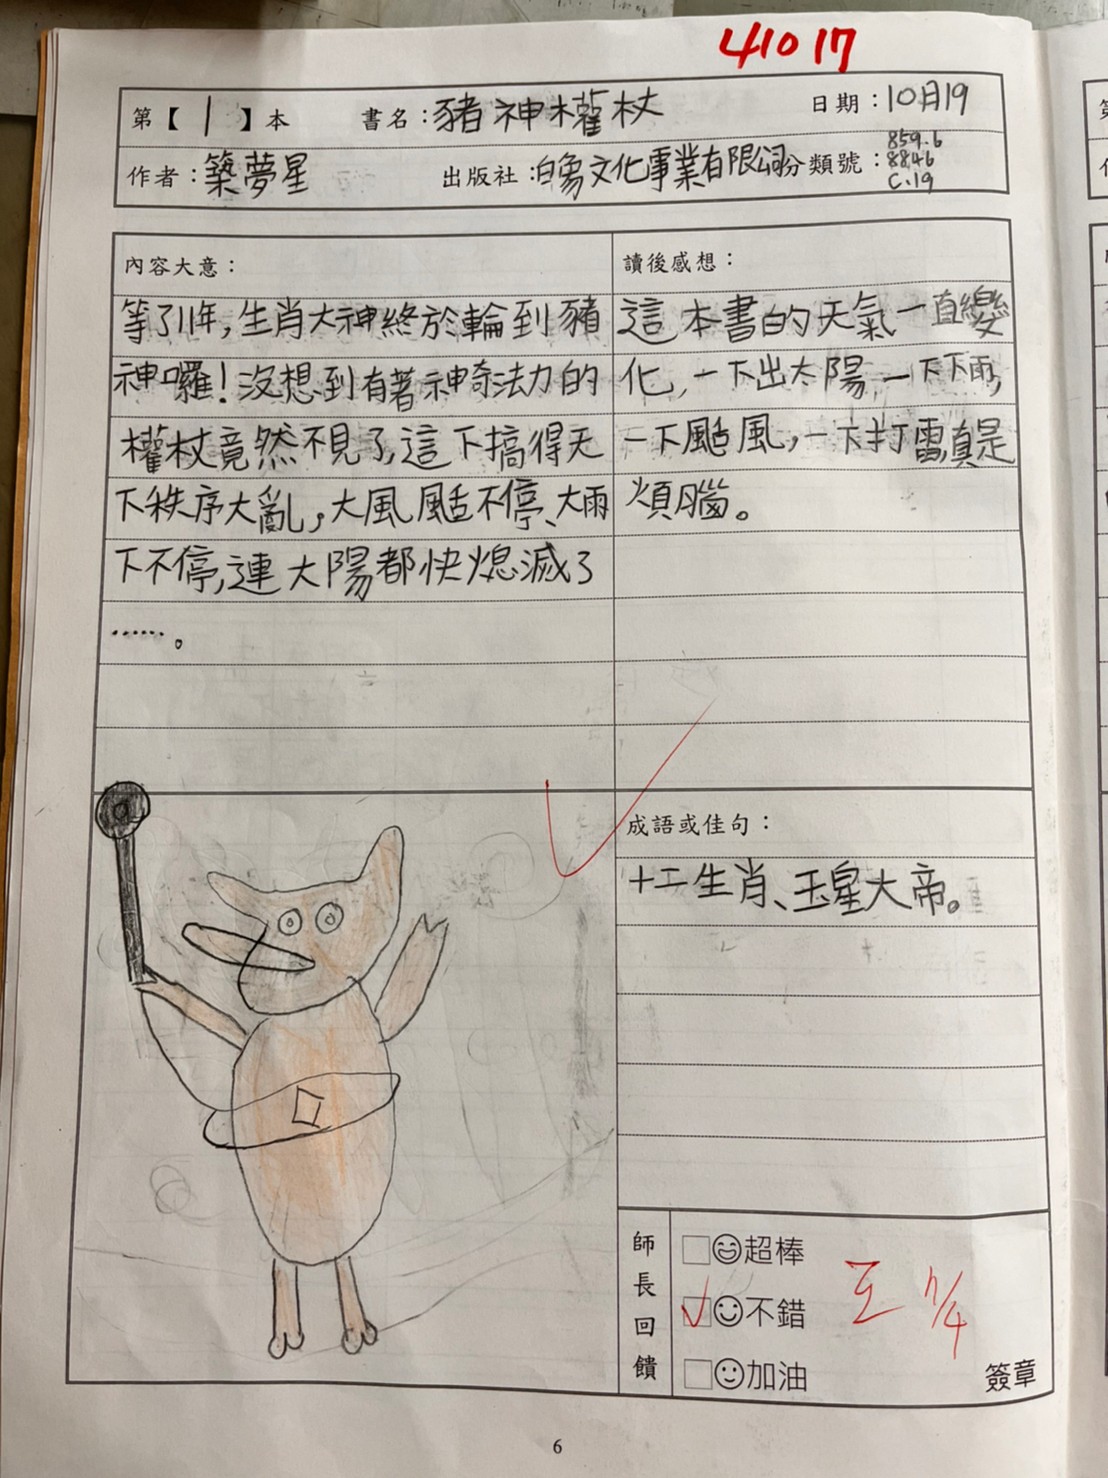 41017
第【1】本 書名:豬神權杖 日期:10月19
作者:築夢星 出版社:白象文化事業有限公司 分類號:859.6 8846 C.19
內容大意:
等了11年,生肖大神終於輪到豬
神囉!沒想到有著神奇法力的
權杖竟然不見了,這下搞得天
下秩序大亂,大風颳不停、大雨
下不停,連太陽都快熄滅了
……。
讀後感想:
這本書的天氣一直變
化,一下出太陽,一下下雨,
一下颳風,一下打雷真是
煩腦。
成語或佳句:
十二生肖、玉皇大帝。
師長回饋
超棒
不錯
加油
簽章
6